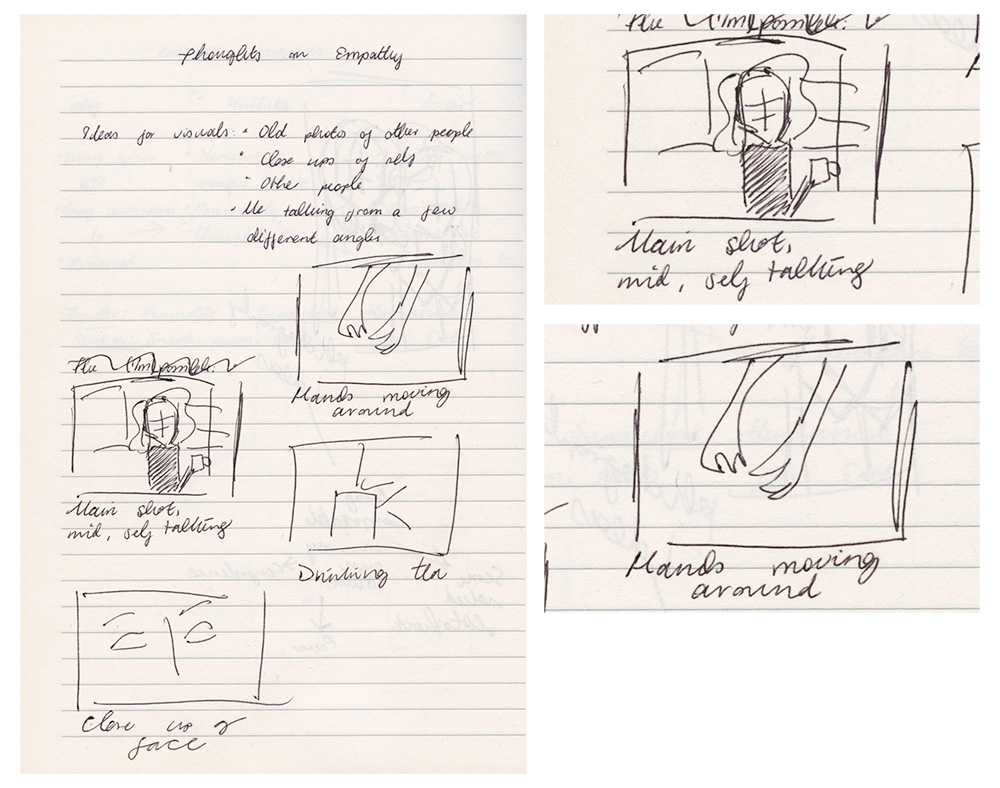 Thoughts on Empathy
Ideas for visuals: • Old photos of other people
• Close ups of self
• Other people
• Me talking from a few
different angles
Hands moving
around
The
Main shot,
mid, self talking
Drinking tea
Close up of
face
The
Main shot,
mid, self talking
Hands moving
around